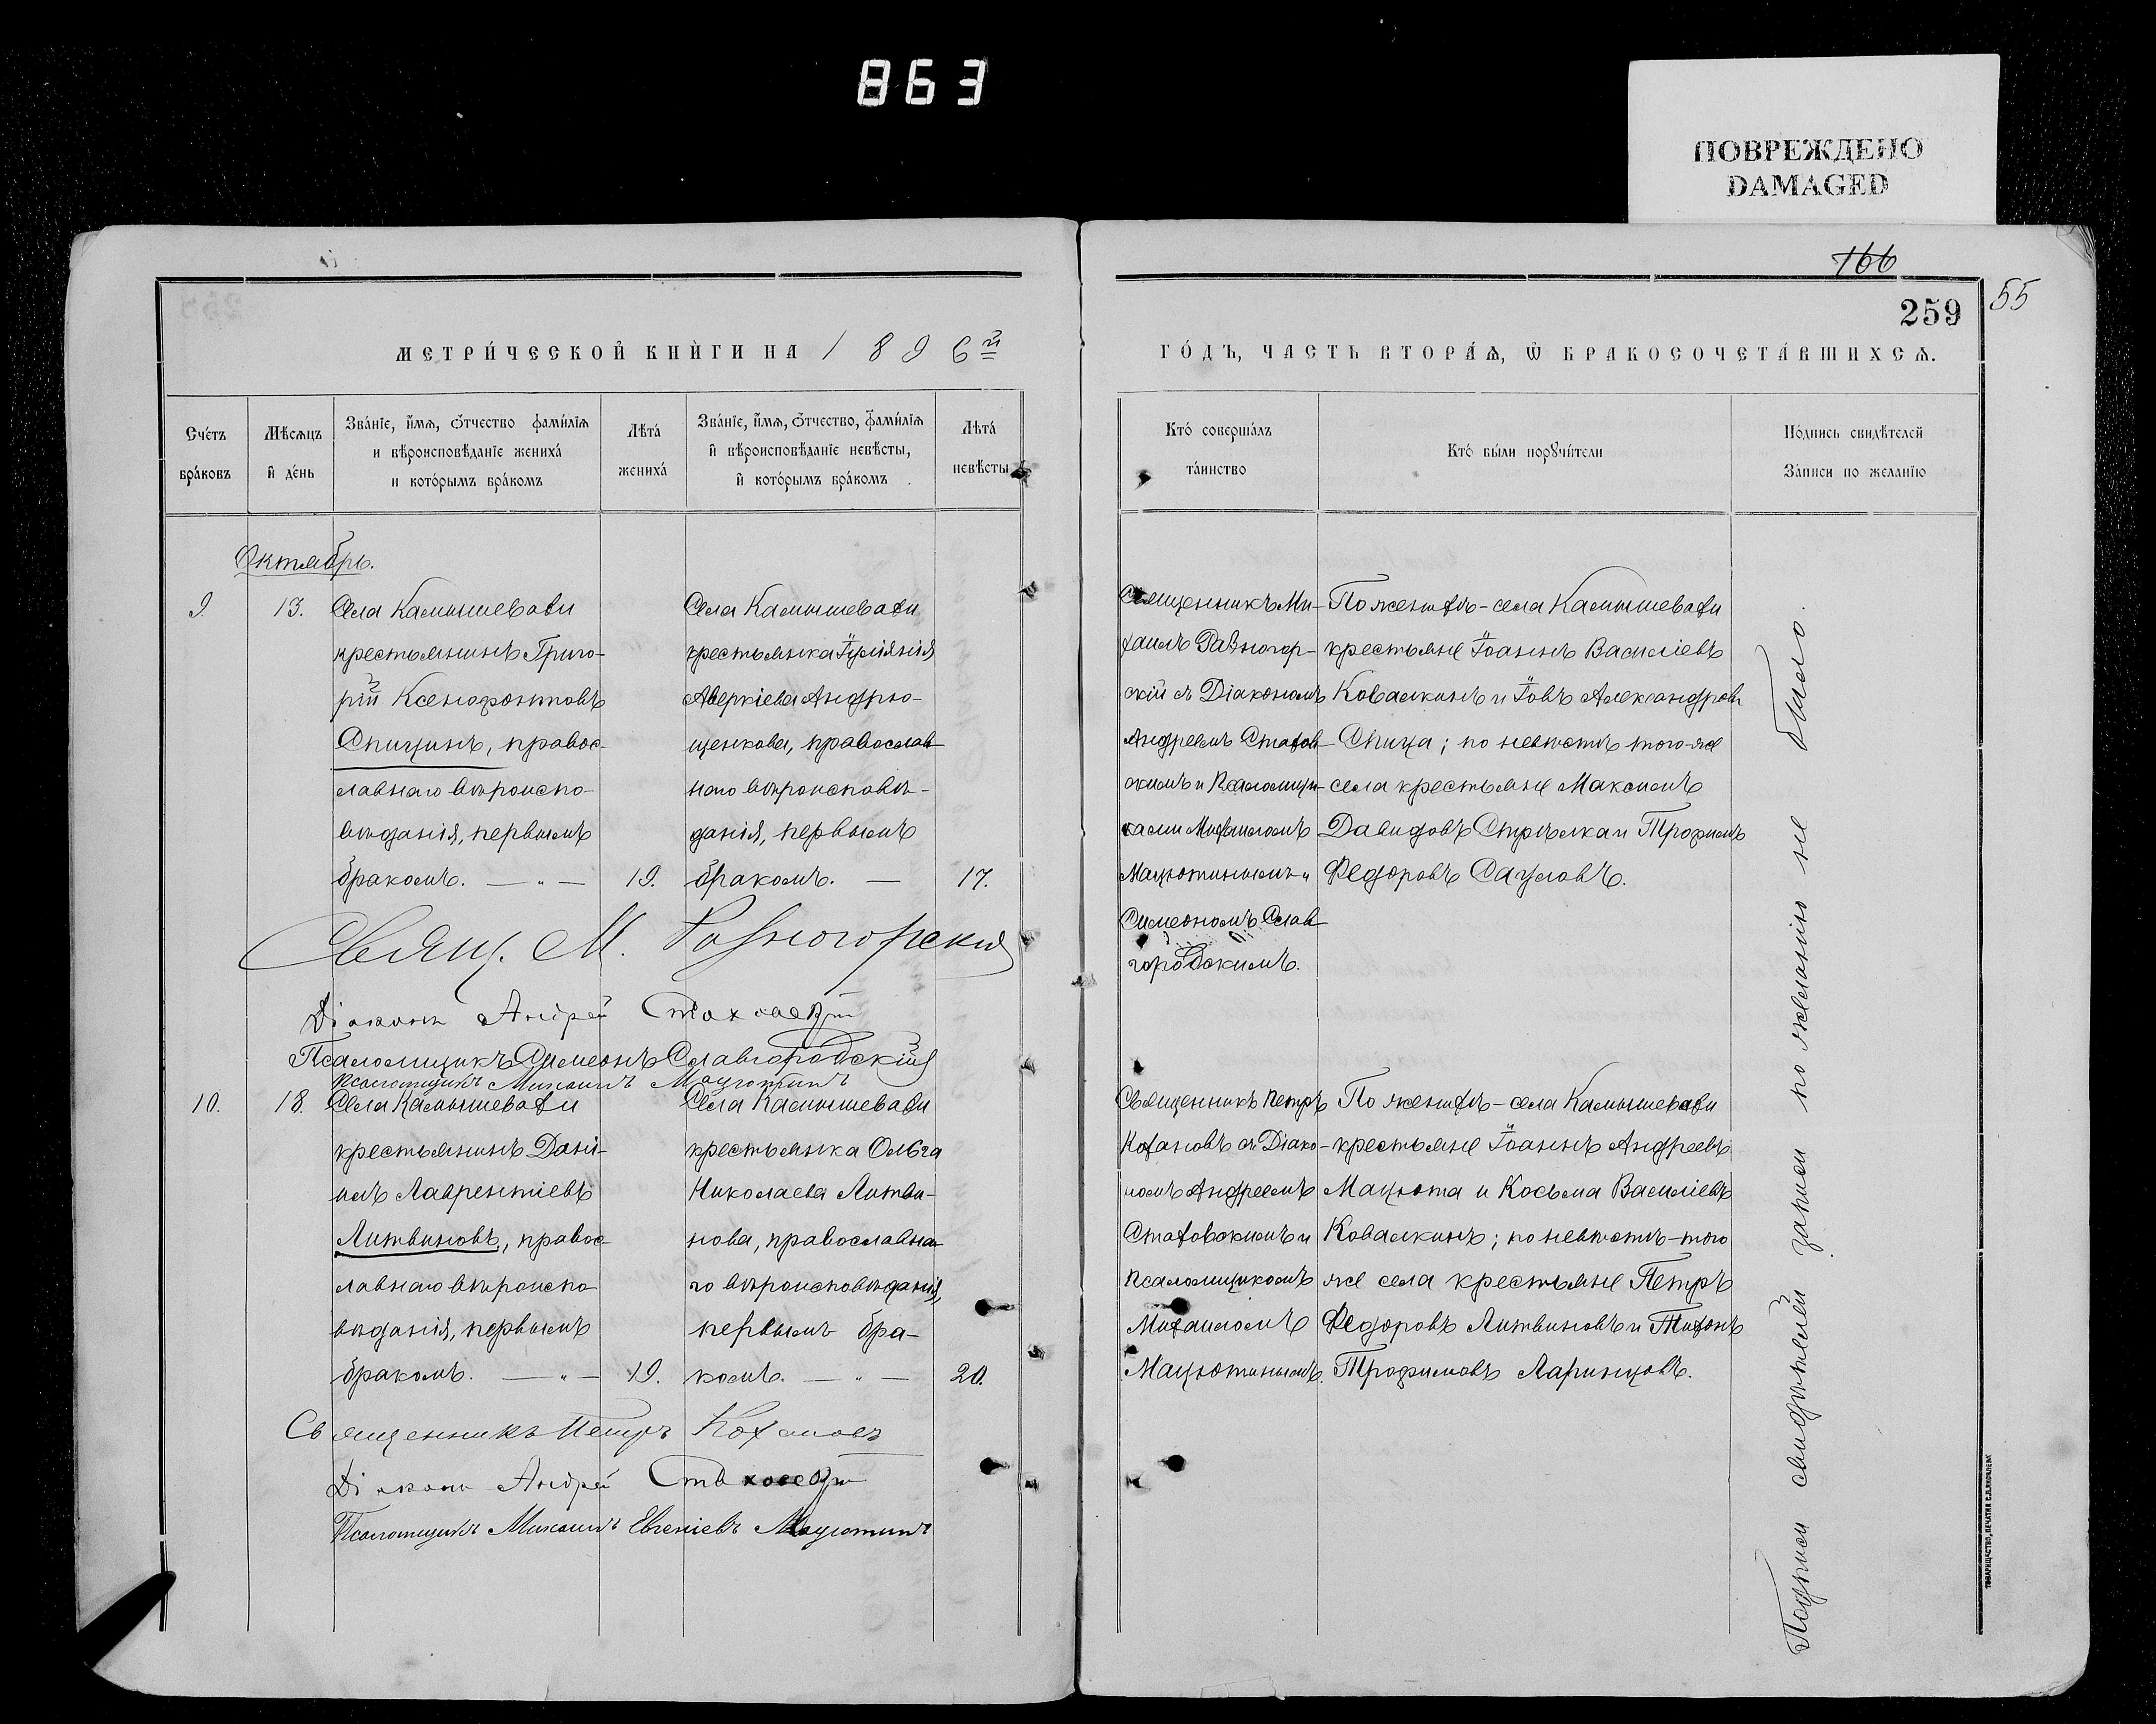 863
ПОВРЕЖДЕНО
DAMAGED
166
259
55
МЕТРИ́ЧЕСКОЙ КНИ́ГИ НА 1896й
ГО́ДЪ, ЧАСТЬ ВТОРА́Ѧ, Ѡ҆ БРАКОСОЧЕТА́ВШИХСѦ.
Сче́тъ
бра́ковъ
Мѣ́сѧцъ
и҆ де́нь
Зва́нїе, и҆́мѧ, ѻ҆́тчество фами́лїѧ
и вѣроисповѣ́данїе жениха́
и кото́рымъ бра́комъ
Лѣта́
жениха́
Зва́нїе, и҆́мѧ, ѻ҆́тчество, фами́лїѧ
и҆ вѣроисповѣ́данїе невѣ́сты,
и҆ кото́рымъ бра́комъ
Лѣта́
невѣ́сты
Кто́ соверша́лъ
та́инство
Кто́ бы́ли порꙋчи́тели
По́дпись свидѣ́телей
За́писи по жела́нїю
Октябрь.
9. 13.
Села Камышевахи
крестьянинъ Григо-
рій Ксенофонтовъ
Спицинъ, правос-
лавнаго вѣроиспо-
вѣданія, первымъ
бракомъ. — „ — 19.
Села Камышевахи
крестьянка Іуліанія
Аверкіева Андрю-
щенкова, православ-
наго вѣроисповѣ-
данія, первымъ
бракомъ. — 17.
Священникъ Ми-
хаилъ Равногор-
скій съ Діакономъ
Андреемъ Стахов-
скимъ и Псаломщи-
ками Михаиломъ
Мацютинымъ и
Симеономъ Слав-
городскимъ.
По женихѣ - села Камышевахи
крестьяне Іоаннъ Василіевъ
Ковалкинъ и Іовъ Александровъ
Спица; по невѣстѣ того-же
села крестьяне Максимъ
Давидовъ Стрѣлка и Трофимъ
Федоровъ Сауловъ.
Свящ. М. Равногорскій
Діаконъ Андрей Стаховскій
Псаломщикъ Симеонъ Славгородскій
Псаломщикъ Михаилъ Мацютинъ
10. 18.
Села Камышевахи
крестьянинъ Дані-
илъ Лаврентіевъ
Литвиновъ, правос-
лавнаго вѣроиспо-
вѣданія, первымъ
бракомъ. — „ — 19.
Села Камышевахи
крестьянка Ольга
Николаева Литви-
нова, православна-
го вѣроисповѣданія,
первымъ бра-
комъ. — „ — 20.
Священникъ Петръ
Кохановъ съ Діако-
номъ Андреемъ
Стаховскимъ и
Псаломщикомъ
Михаиломъ
Мацютинымъ.
По женихѣ - села Камышевахи
крестьяне Іоаннъ Андреевъ
Мацюта и Косьма Василіевъ
Ковалкинъ; по невѣстѣ - того
же села крестьяне Петръ
Федоровъ Литвиновъ и Тихонъ
Трофимовъ Ларинцовъ.
Священникъ Петръ Кохановъ
Діаконъ Андрей Стаховскій
Псаломщикъ Михаилъ Евгеніевъ Мацютинъ
Подписи свидѣтелей записи по желанію не было.
ТОВАРИЩЕСТВО „ПЕЧАТНЯ С.П.ЯКОВЛЕВА“